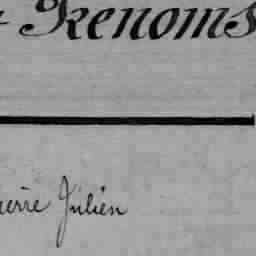 & Prénoms
Pierre Julien